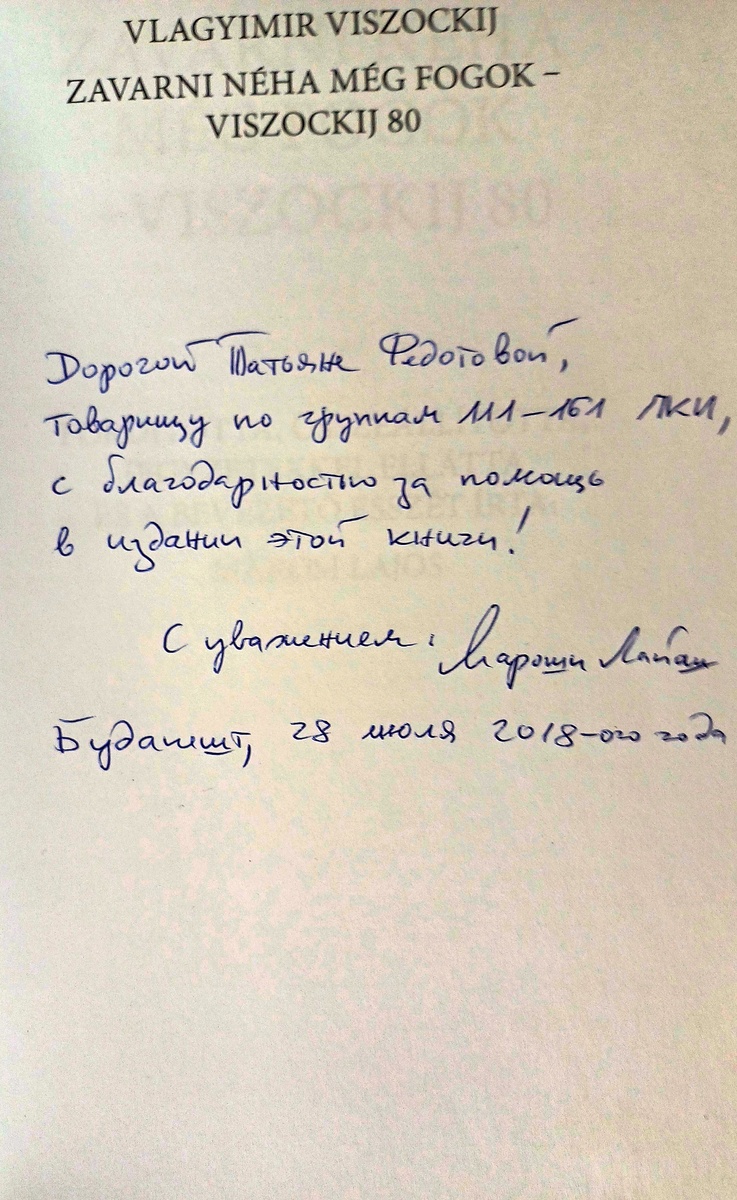 VLAGYIMIR VISZOCKIJ
ZAVARNI NÉHA MÉG FOGOK –
VISZOCKIJ 80
Дорогой Татьяне Федотовой,
товарищу по группам 111–161 ЛКИ,
с благодарностью за помощь
в издании этой книги!
С уважением: Мароши Лайош
Будапешт, 28 июля 2018-ого года